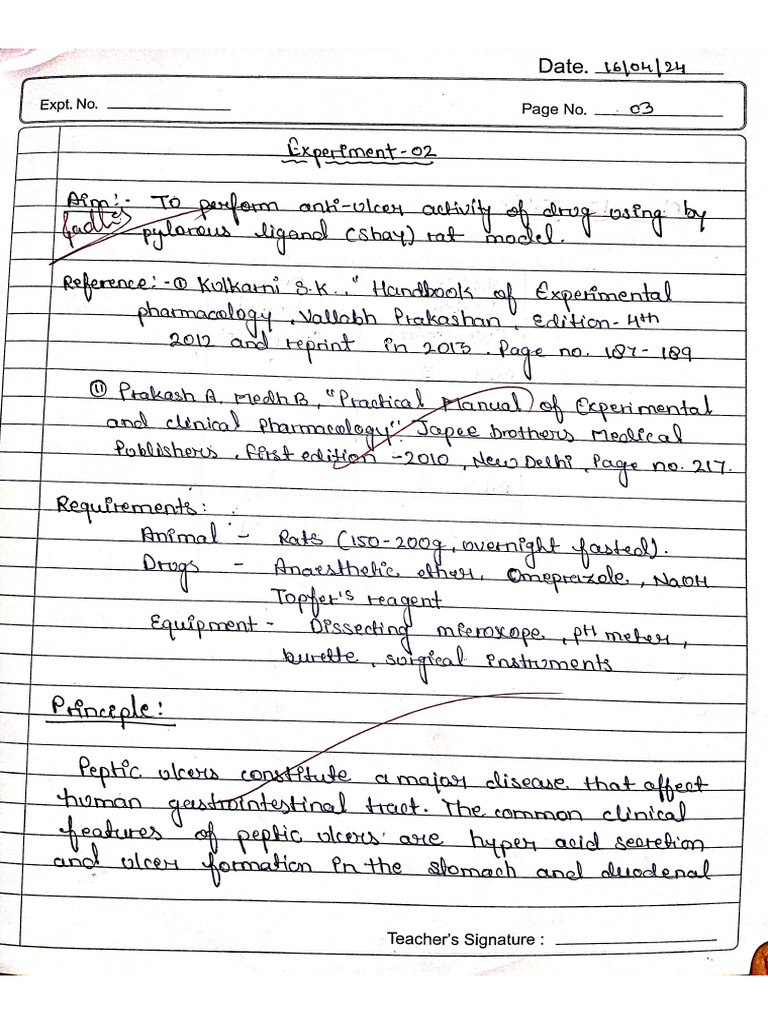 Date. 16/04/24
Expt. No.
Page No. 03
Experiment-02
Aim:- To perform anti-ulcer activity of drug using by
pylorous ligand (Shay) rat model.
Reference:- ① Kulkarni S.K., "Handbook of Experimental
pharmacology, Vallabh Prakashan, Edition-4th
2012 and reprint in 2013. Page no. 187-189
⑪ Prakash A. Medh B, "Practical Manual of Experimental
and clinical Pharmacology". Japee brothers Medical
Publishers, First edition -2010, New Delhi, Page no. 217.
Requirements:
Animal - Rats (150-200g, overnight fasted).
Drugs - Anaesthetic other, Omeprazole, NaOH
Topfer's reagent
Equipment - Dissecting microxope, pH meter,
burette, surgical instruments
Principle:
Peptic ulcers constitute a major disease that affect
human gastrointestinal tract. The common clinical
features of peptic ulcers are hyper acid secretion
and ulcer formation in the stomach and duodenal
Teacher's Signature :